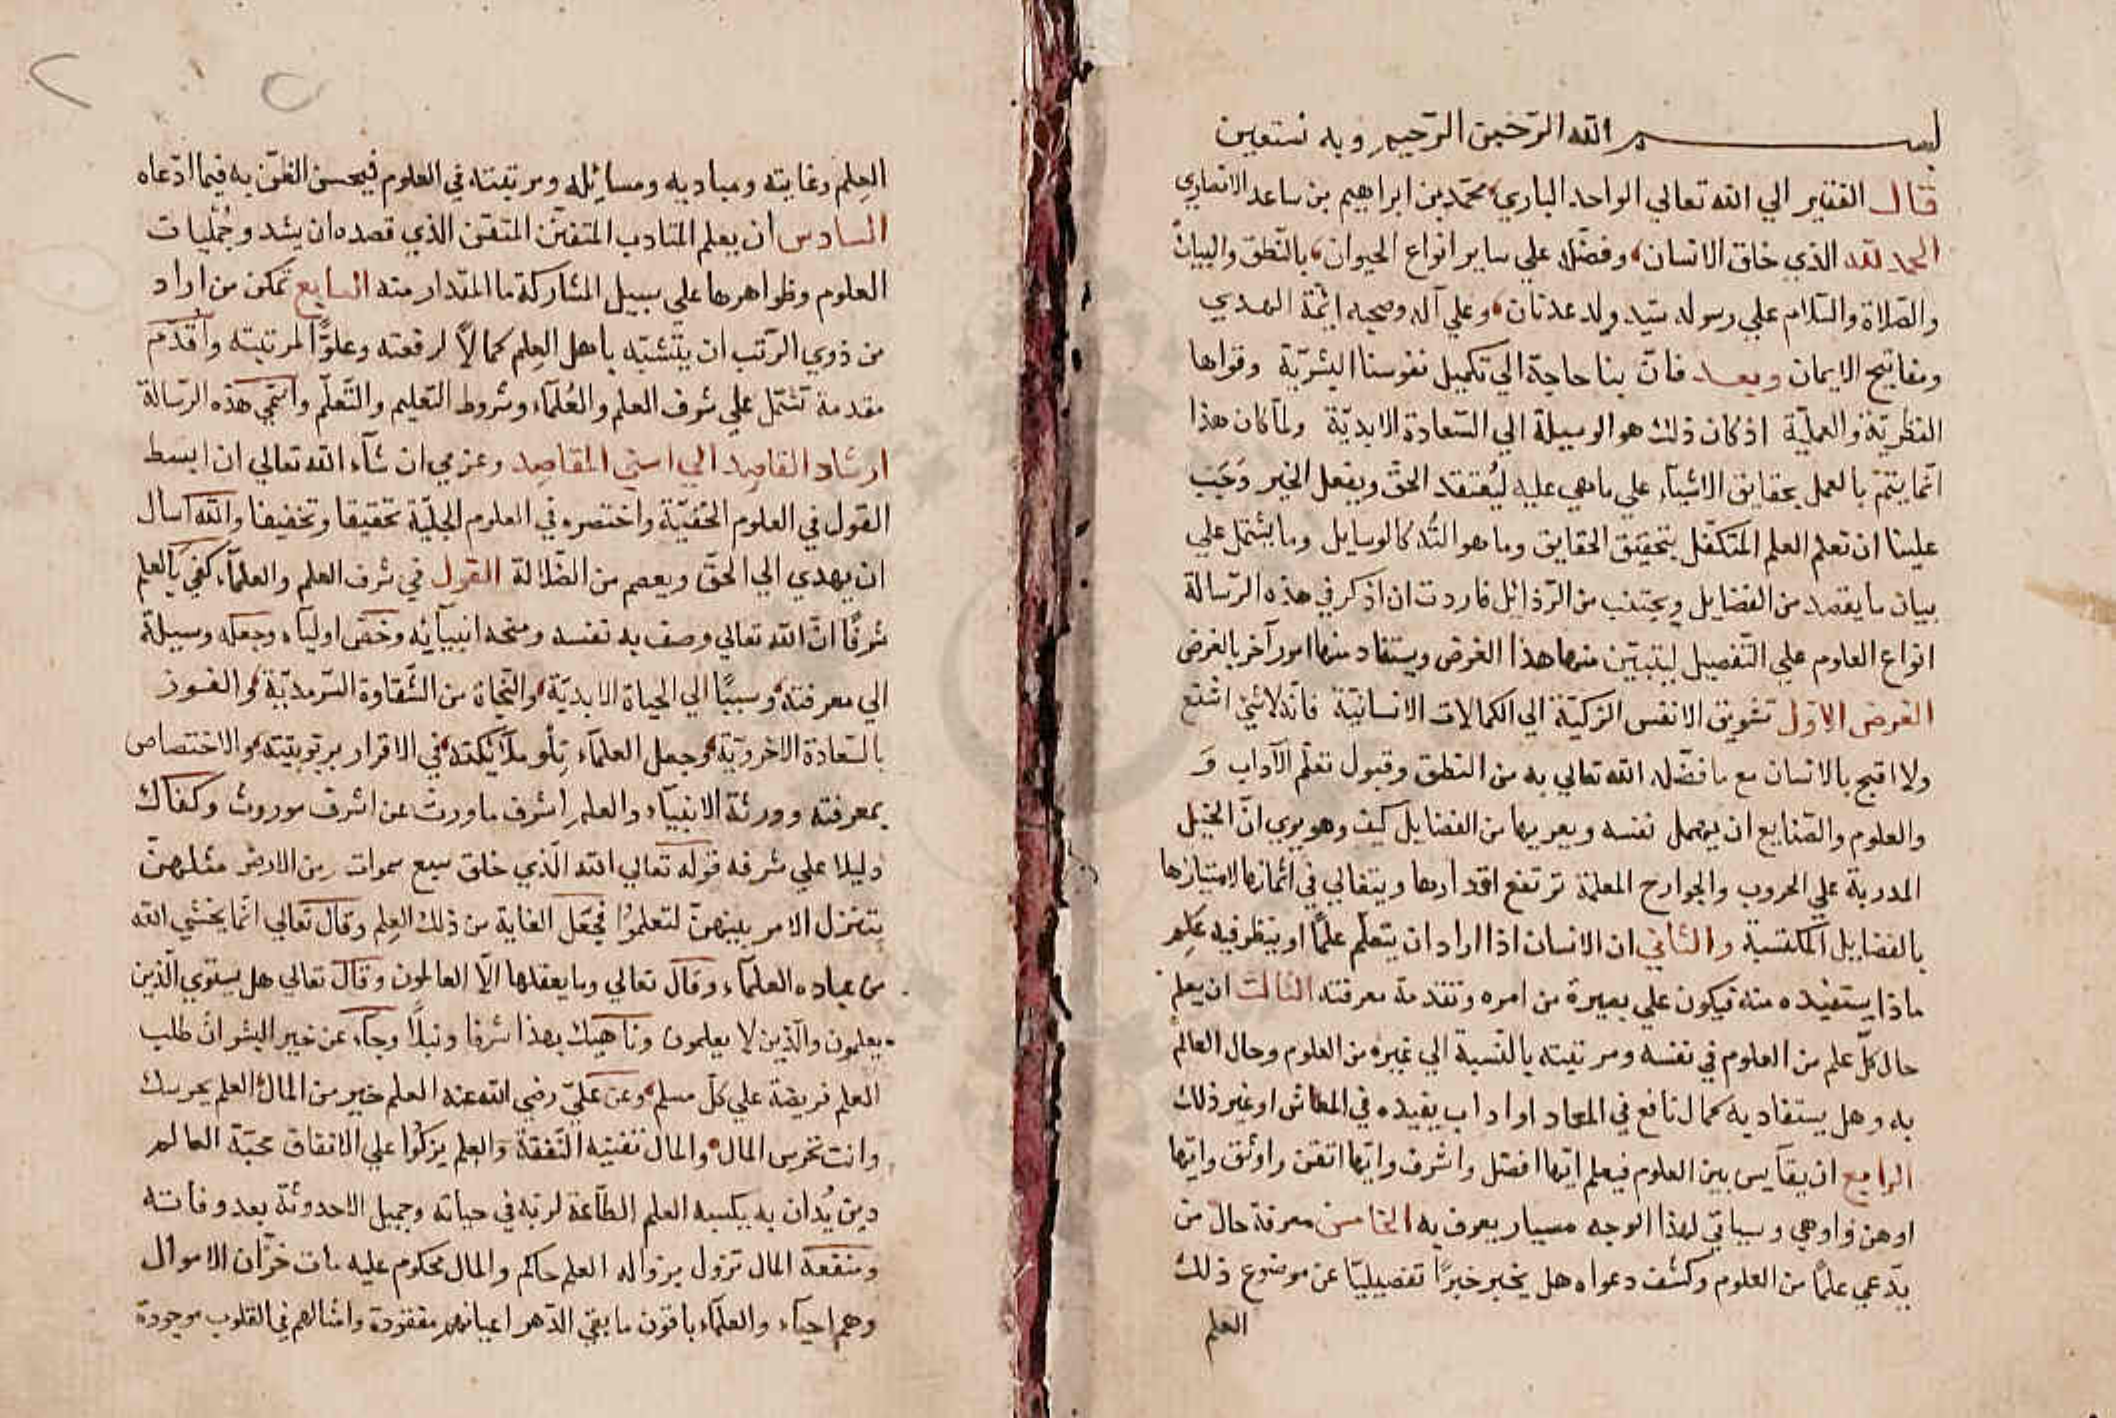 بسم الله الرّحمن الرّحيم وبه نستعين
قال الفقير الي الله تعالي الواحد الباري محمّد بن ابراهيم بن ساعد الانصاري
الحمد لله الذي خلق الانسان وفضّله علي ساير انواع الحيوان بالنّطق والبيان
والصّلاة والسّلام علي رسوله سيّد ولد عدنان وعلي آله وصحبه ائمّة الهدي
ومفاتيح الايمان وبعد فانّ بنا حاجة الي تكميل نفوسنا البشريّة وقواها
النظريّة والعمليّة اذ كان ذلك هو الوسيلة الي السّعادة الابديّة ولمّا كان هذا
انّما يتمّ بالعمل بحقايق الاشيآء علي ما هي عليه ليُعتقد الحقّ ويفعل الخير وَجَبَ
علينا ان نعلم العلم المتكفّل بتحقيق الحقايق وما هو التُه كالوسايل وما يشتمل علي
بيان ما يقصد من الفضايل ويجتنب من الرّذائل فاردت ان اذكر في هذه الرّسالة
انواع العلوم علي التّفصيل ليتبيّن منها هذا الغرض ويستفاد منها امور آخر بالعرض
الغرض الاوّل تشويق الانفس الزكيّة الي الكمالات الانسانيّة فانّه لا شئ اشنع
ولا اقبح بالانسان مع ما فضّله الله تعالي به من النطق وقبول تعلّم الآداب وَ
والعلوم والصّنايع ان يهمل نفسه ويعريها من الفضايل كيف وهو يري انّ الخيل
المدربة علي الحروب والجوارح المعلمة ترتفع اقدارها ويتغالي في اثمانها لامتيازها
بالفضاييل المكتسبة والثاني ان الانسان اذا اراد ان يتعلّم علمًا او ينظر فيه عَلِم
ماذا يستفيده منه فيكون علي بصيرة من امره وتقدمة معرفته الثالث ان يعلم
حال كلّ علم من العلوم في نفسه ومرتبته بالنّسبة الي غيره من العلوم وحال العالم
به وهل يستفاد به كمال نافع في المعاد او اداب يفيده في المعاش او غير ذلك
الرابع ان يقايس بين العلوم فيعلم ايّها افضل واشرف وايّها اتقن واوثق وايّها
اوهن واوهي وسياتي لهذا الوجه مسبار يعرف به الخامس معرفة حال من
يدّعي علمًا من العلوم وكشف دعواه هل يخبر خبرًا تفصيليّا عن موضوع ذلك
العلم
العِلم وغايته ومباديه ومسائله ومرتبته في العلوم فيحسن الظنّ به فيما ادّعاه
السادس ان يعلم المتادب المتفنّن المتقن الذي قصده ان يشد وجُمليات
العلوم وظواهرها علي سبيل المشاركة ما المقدار منه السابع تمكن من اراد
من ذوي الرّتب ان يتشبّه باهل العِلم كمالًا لرفعته وعلوًّا لمرتبته واُقدّم
مقدمة تشتمل علي شرف العلم والعُلمآء وشروط التّعليم والتّعلّم واُسمّي هذه الرّسالة
ارشاد القاصد الي اسني المقاصد وعزمي ان شآء الله تعالي ان ابسط
القول في العلوم الخفيّة واختصره في العلوم الجليّة تحقيقا وتخفيفا والله اسال
ان يهدي الي الحقّ ويعصم من الضّلالة القول في شرف العلم والعلمآء كفي بالعلم
شرفًا انّ الله تعالي وصف به نفسه ومنحه انبيآئه وخصّ اولياه وجعله وسيلة
الي معرفته وسببًا الي الحياة الابديّة والنّجاة من الشّقاوة السّرمديّة والفوز
بالسّعادة الاخرويّة وجعل العلمآء تِلْو ملآئكته في الاقرار بربوبيّته والاختصاص
بمعرفته وورثة الانبيآء والعلم اشرف ما ورث عن اشرف موروث وكفاك
دليلا علي شرفه قوله تعالي الله الّذي خلق سبع سموات ومن الارض مثلهنّ
يتنزل الامر بينهنّ لتعلموُا فجعل الغاية من ذلك العِلم وقال تعالي انّما يخشي الله
من عباده العلمآء وقال تعالي وما يعقلها الّا العالمون وقال تعالي هل يستوي الّذين
يعلمون والّذين لا يعلمون وناهيك بهذا شرفا ونبلًا وجآء عن خير البشر انّ طلب
العلم فريضة علي كلّ مسلم وعن عليّ رضي الله عنه العلم خير من المال العلم يحرسك
وانت تحرس المال والمال تفنيه النّفقة والعلم يزكُوا علي الانفاق محبّة العالم
دين يُدان به يكسبه العلم الطّاعة لربّه في حياته وجميل الاحدوثة بعد وفاته
ومنفعة المال تزول بزواله العلم حاكم والمال محكوم عليه مات خزّان الاموال
وهم احيآء والعلمآء باقون ما بقي الدّهر اعيانهم مفقودة وامثالهم في القلوب موجودة